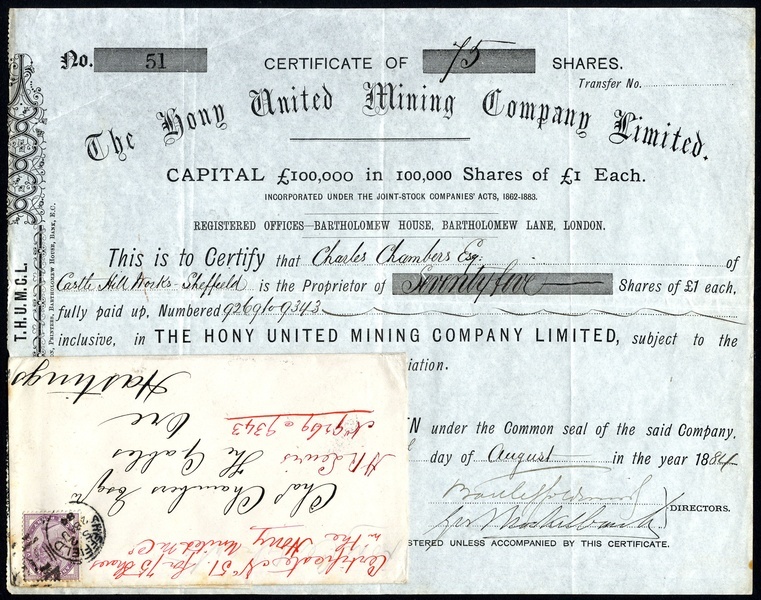 No. 51 CERTIFICATE OF 75 SHARES.
Transfer No.
The Hony United Mining Company Limited.
CAPITAL £100,000 in 100,000 Shares of £1 Each.
INCORPORATED UNDER THE JOINT-STOCK COMPANIES' ACTS, 1862-1883.
REGISTERED OFFICES—BARTHOLOMEW HOUSE, BARTHOLOMEW LANE, LONDON.
This is to Certify that Charles Chambers Esq: of
Castle Hill Works - Sheffield is the Proprietor of Seventy five Shares of £1 each,
fully paid up, Numbered 9269 to 9343
inclusive, in THE HONY UNITED MINING COMPANY LIMITED, subject to the
iation.
N under the Common seal of the said Company,
day of August in the year 1884
DIRECTORS.
STERED UNLESS ACCOMPANIED BY THIS CERTIFICATE.
T.H.U.M.C.L.
PRINTERS, BARTHOLOMEW HOUSE, BANK, E.C.
Certificate No 51 for 75 Shares
in the Hony United M. Co
Chas Chambers Esqre
H R Lewis The Gables
No 9269 @ 9343 Ore
Hastings
SHEFFIELD